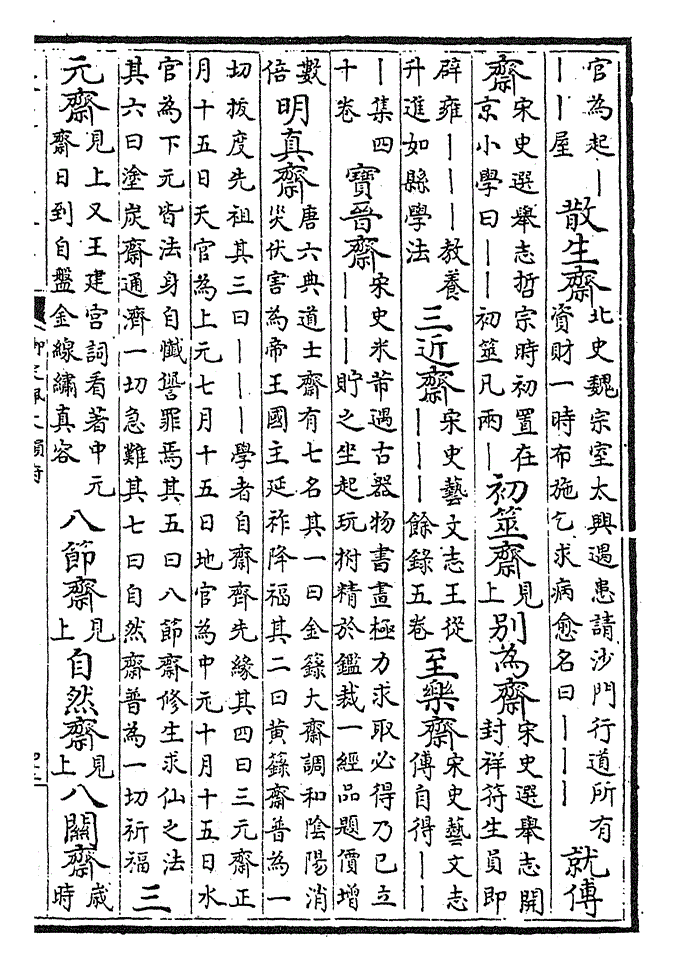 官為起丨丨丨屋 散生齋 北史魏宗室太興遇患請沙門行道所有資財一時布施乞求病愈名曰丨丨丨 就傅
齋 宋史選舉志哲宗時初置在京小學曰丨丨初筮凡兩丨 初筮齋 見上 別為齋 宋史選舉志開封祥符生員即
辟雍丨丨丨教養升進如縣學法 三近齋 宋史藝文志王從丨丨丨餘錄五卷 至樂齋 宋史藝文志傅自得丨丨
丨集四十卷 寶晉齋 宋史米芾遇古器物書畫極力求取必得乃已立丨丨丨貯之坐起玩拊精於鑑裁一經品題價增
數倍 明真齋 唐六典道士齋有七名其一曰金籙大齋調和陰陽消災伏害為帝王國主延祚降福其二曰黃籙齋普為一
切拔度先祖其三曰丨丨丨學者自齋齊先緣其四曰三元齋正月十五日天官為上元七月十五日地官為中元十月十五日水
官為下元皆法身自懺愆罪焉其五曰八節齋修生求仙之法其六曰塗炭齋通濟一切急難其七曰自然齋普為一切祈福 三
元齋 見上又王建宮詞看著中元齋日到自盤金線繡真容 八節齋 見上 自然齋 見上 八關齋 歲時